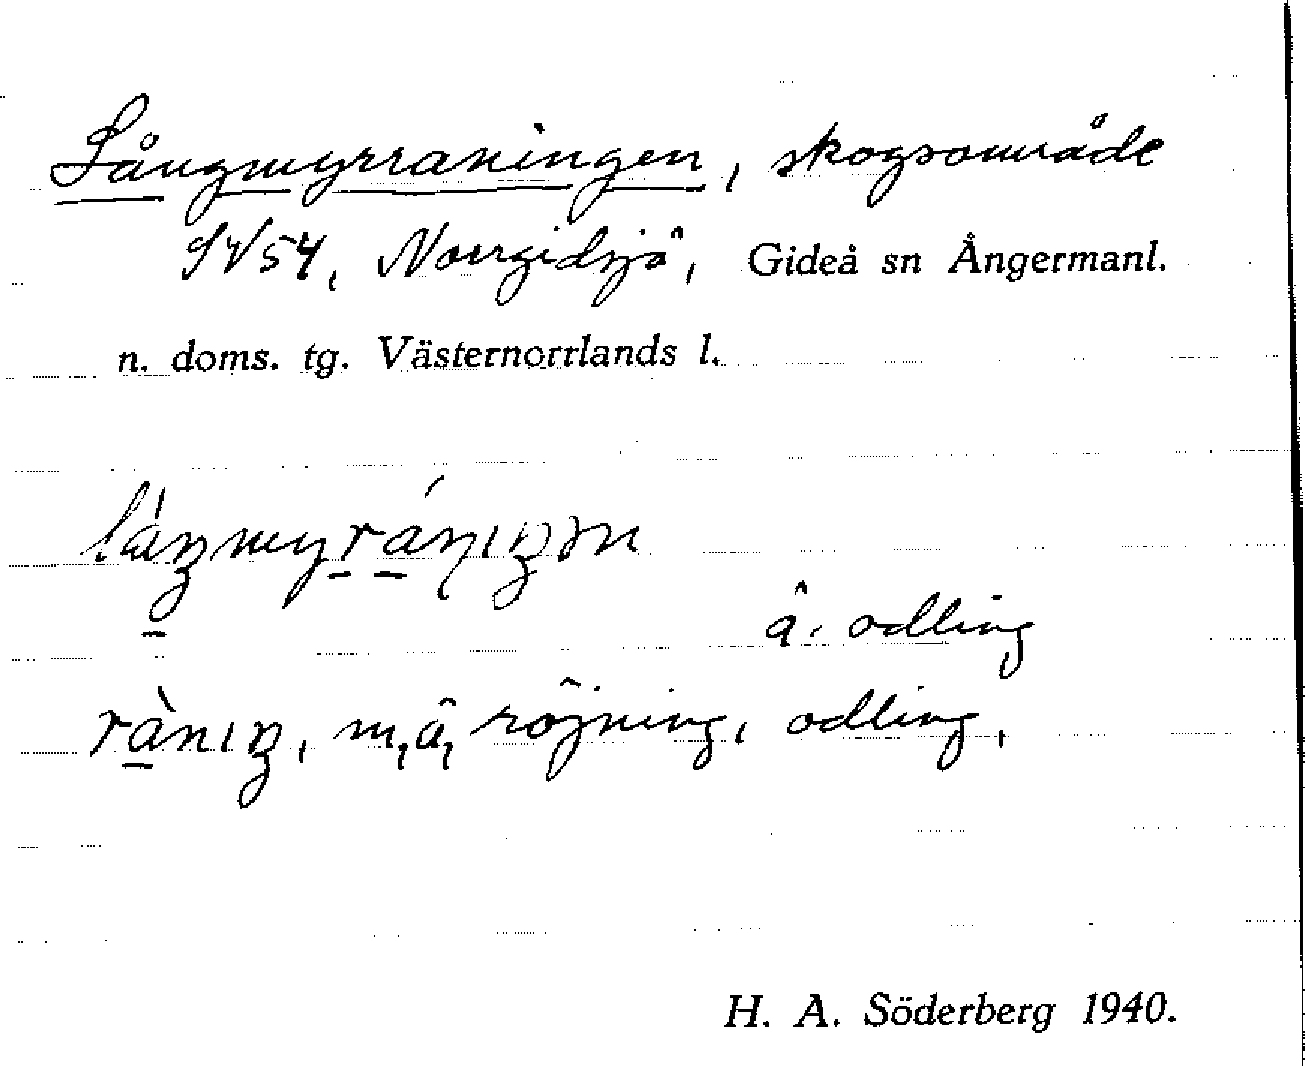 Långmyrraningen, skogsområde
SV54, Norrgidsjö, Gideå sn Ångermanl.
n. doms. tg. Västernorrlands l.
låŋmyrániŋən
â. odling
ràniŋ, m, â, röjning, odling,
H. A. Söderberg 1940.